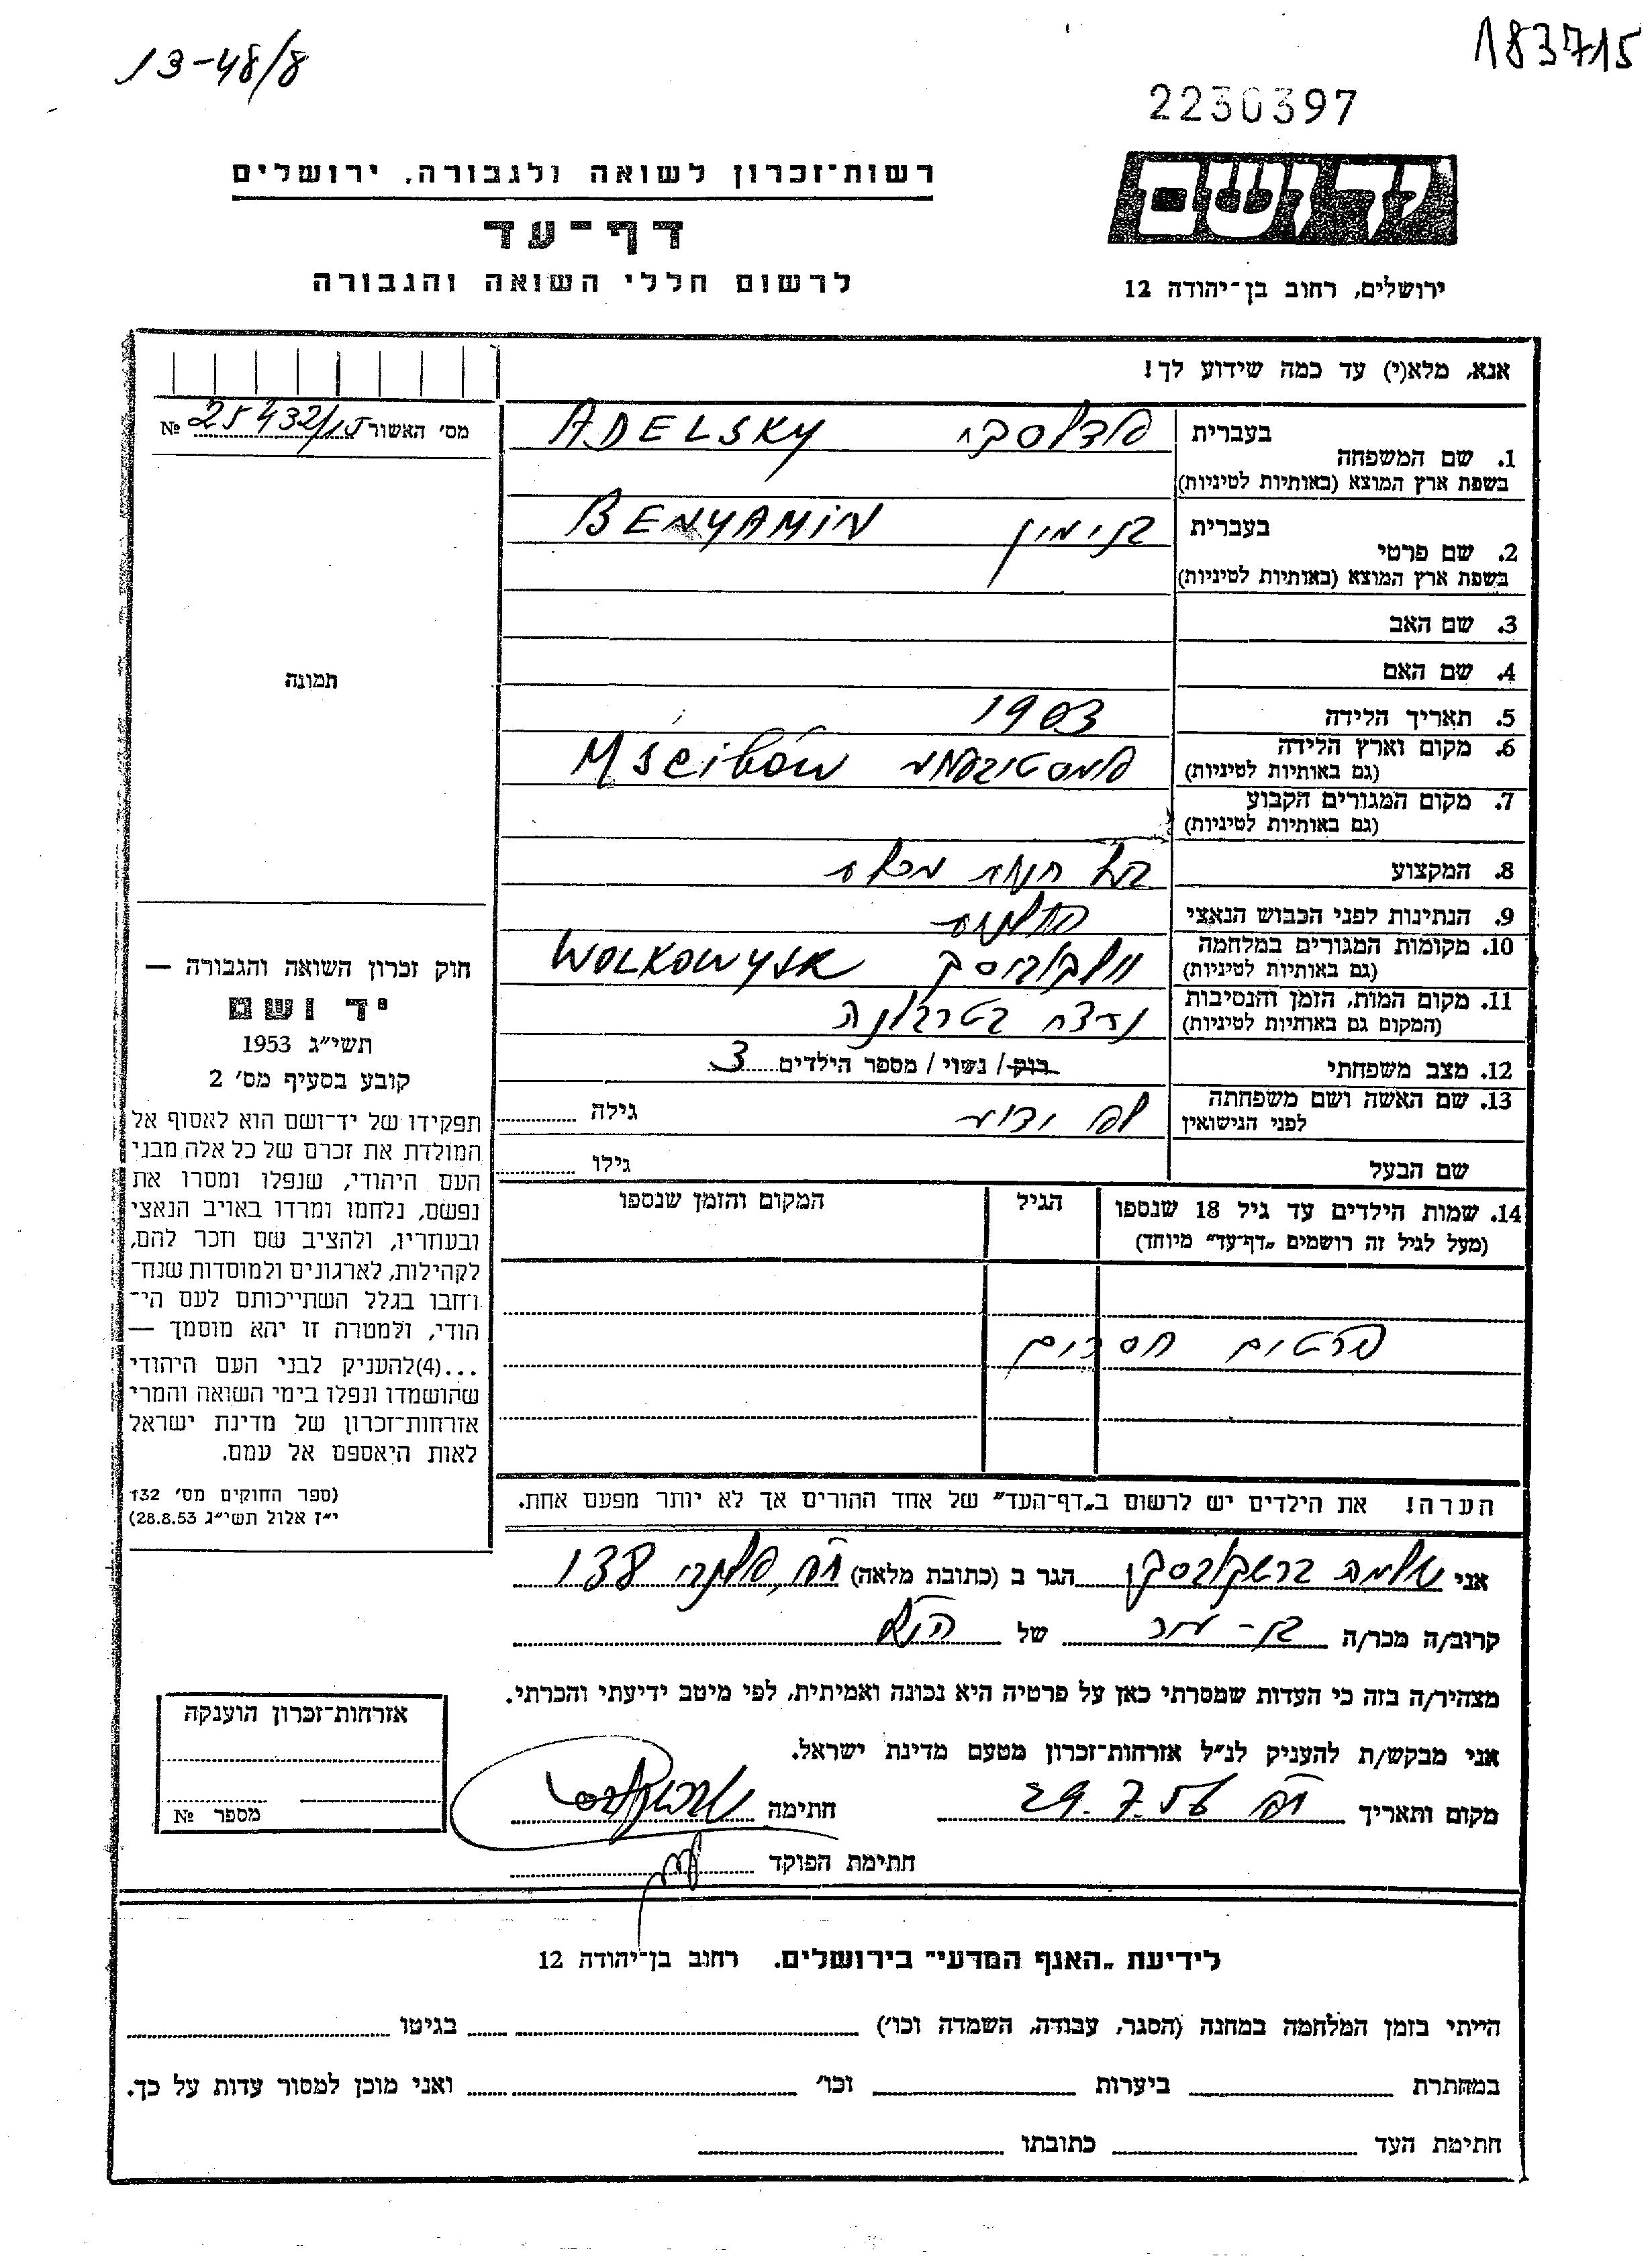 13-48/8
183715
2230397
רשות־זכרון לשואה ולגבורה, ירושלים
דף־עד
לרשום חללי השואה והגבורה
יד ושם
ירושלים, רחוב בן־יהודה 12
אנא, מלא(י) עד כמה שידוע לך!
מס׳ האשור 25432/15 №
1. שם המשפחה
בעברית
אדלסקי ADELSKY
בשפת ארץ המוצא (באותיות לטיניות)
2. שם פרטי
בעברית
בנימין BENYAMIN
בשפת ארץ המוצא (באותיות לטיניות)
3. שם האב
4. שם האם
5. תאריך הלידה 1903
6. מקום וארץ הלידה
(גם באותיות לטיניות)
Mścibów
7. מקום המגורים הקבוע
(גם באותיות לטיניות)
8. המקצוע בעל חנות מכולת
9. הנתינות לפני הכבוש הנאצי
10. מקומות המגורים במלחמה
(גם באותיות לטיניות)
WOLKOWYSK
11. מקום המות, הזמן והנסיבות
(המקום גם באותיות לטיניות)
נרצח בטרבלינקה
12. מצב משפחתי רוק/ נשוי / מספר הילדים 3
13. שם האשה ושם משפחתה
לפני הנישואין
לא ידוע גילה
שם הבעל גילו
14. שמות הילדים עד גיל 18 שנספו
(מעל לגיל זה רושמים „דף־עד״ מיוחד)
הגיל
המקום והזמן שנספו
פרטים חסרים
הערה! את הילדים יש לרשום ב„דף־העד״ של אחד ההורים אך לא יותר מפעם אחת.
תמונה
חוק זכרון השואה והגבורה —
יד ושם
תשי״ג 1953
קובע בסעיף מס׳ 2
תפקידו של יד־ושם הוא לאסוף אל
המולדת את זכרם של כל אלה מבני
העם היהודי, שנפלו ומסרו את
נפשם, נלחמו ומרדו באויב הנאצי
ובעוזריו, ולהציב שם וזכר להם,
לקהילות, לארגונים ולמוסדות שנח־
רחבו בגלל השתייכותם לעם הי־
הודי, ולמטרה זו יהא מוסמך —
...(4)להעניק לבני העם היהודי
שהושמדו ונפלו בימי השואה והמרי
אזרחות־זכרון של מדינת ישראל
לאות היאספם אל עמם.
(ספר החוקים מס׳ 132
י״ז אלול תשי״ג 28.8.53)
אני שלמה הגר ב (כתובת מלאה) 138
קרוב/ה מכר/ה של הנ״ל
מצהיר/ה בזה כי העדות שמסרתי כאן על פרטיה היא נכונה ואמיתית, לפי מיטב ידיעתי והכרתי.
אני מבקש/ת להעניק לנ״ל אזרחות־זכרון מטעם מדינת ישראל.
מקום ותאריך ת״א 29.7.56 חתימה
חתימת הפוקד
אזרחות־זכרון הוענקה
מספר №
לידיעת „האגף המדעי״ בירושלים. רחוב בן־יהודה 12
הייתי בזמן המלחמה במחנה (הסגר, עבודה, השמדה וכו׳) בגיטו
במחתרת ביערות וכו׳ ואני מוכן למסור עדות על כך.
חתימת העד כתובתו